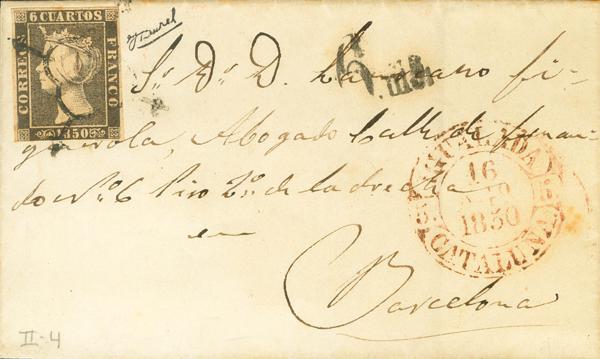 6 CUARTOS
CORREOS
FRANCO
1850
Sr. Dn. D. fi-
guerola, Abogado Calle de Fernan-
do No. 6 Piso 2o. de la derecha
en
Barcelona
6
IGUALADA
16
1850
CATALUÑA
II-4